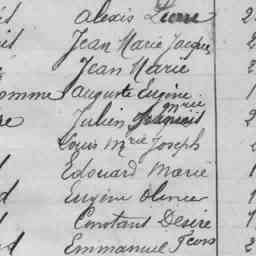 Alexis Pierre
Jean Marie Jacques
Jean Marie
Auguste Eugène
Julien François Mrie
Louis Mrie Joseph
Edouard Marie
Eugène Olivier
Constant Désiré
Emmanuel